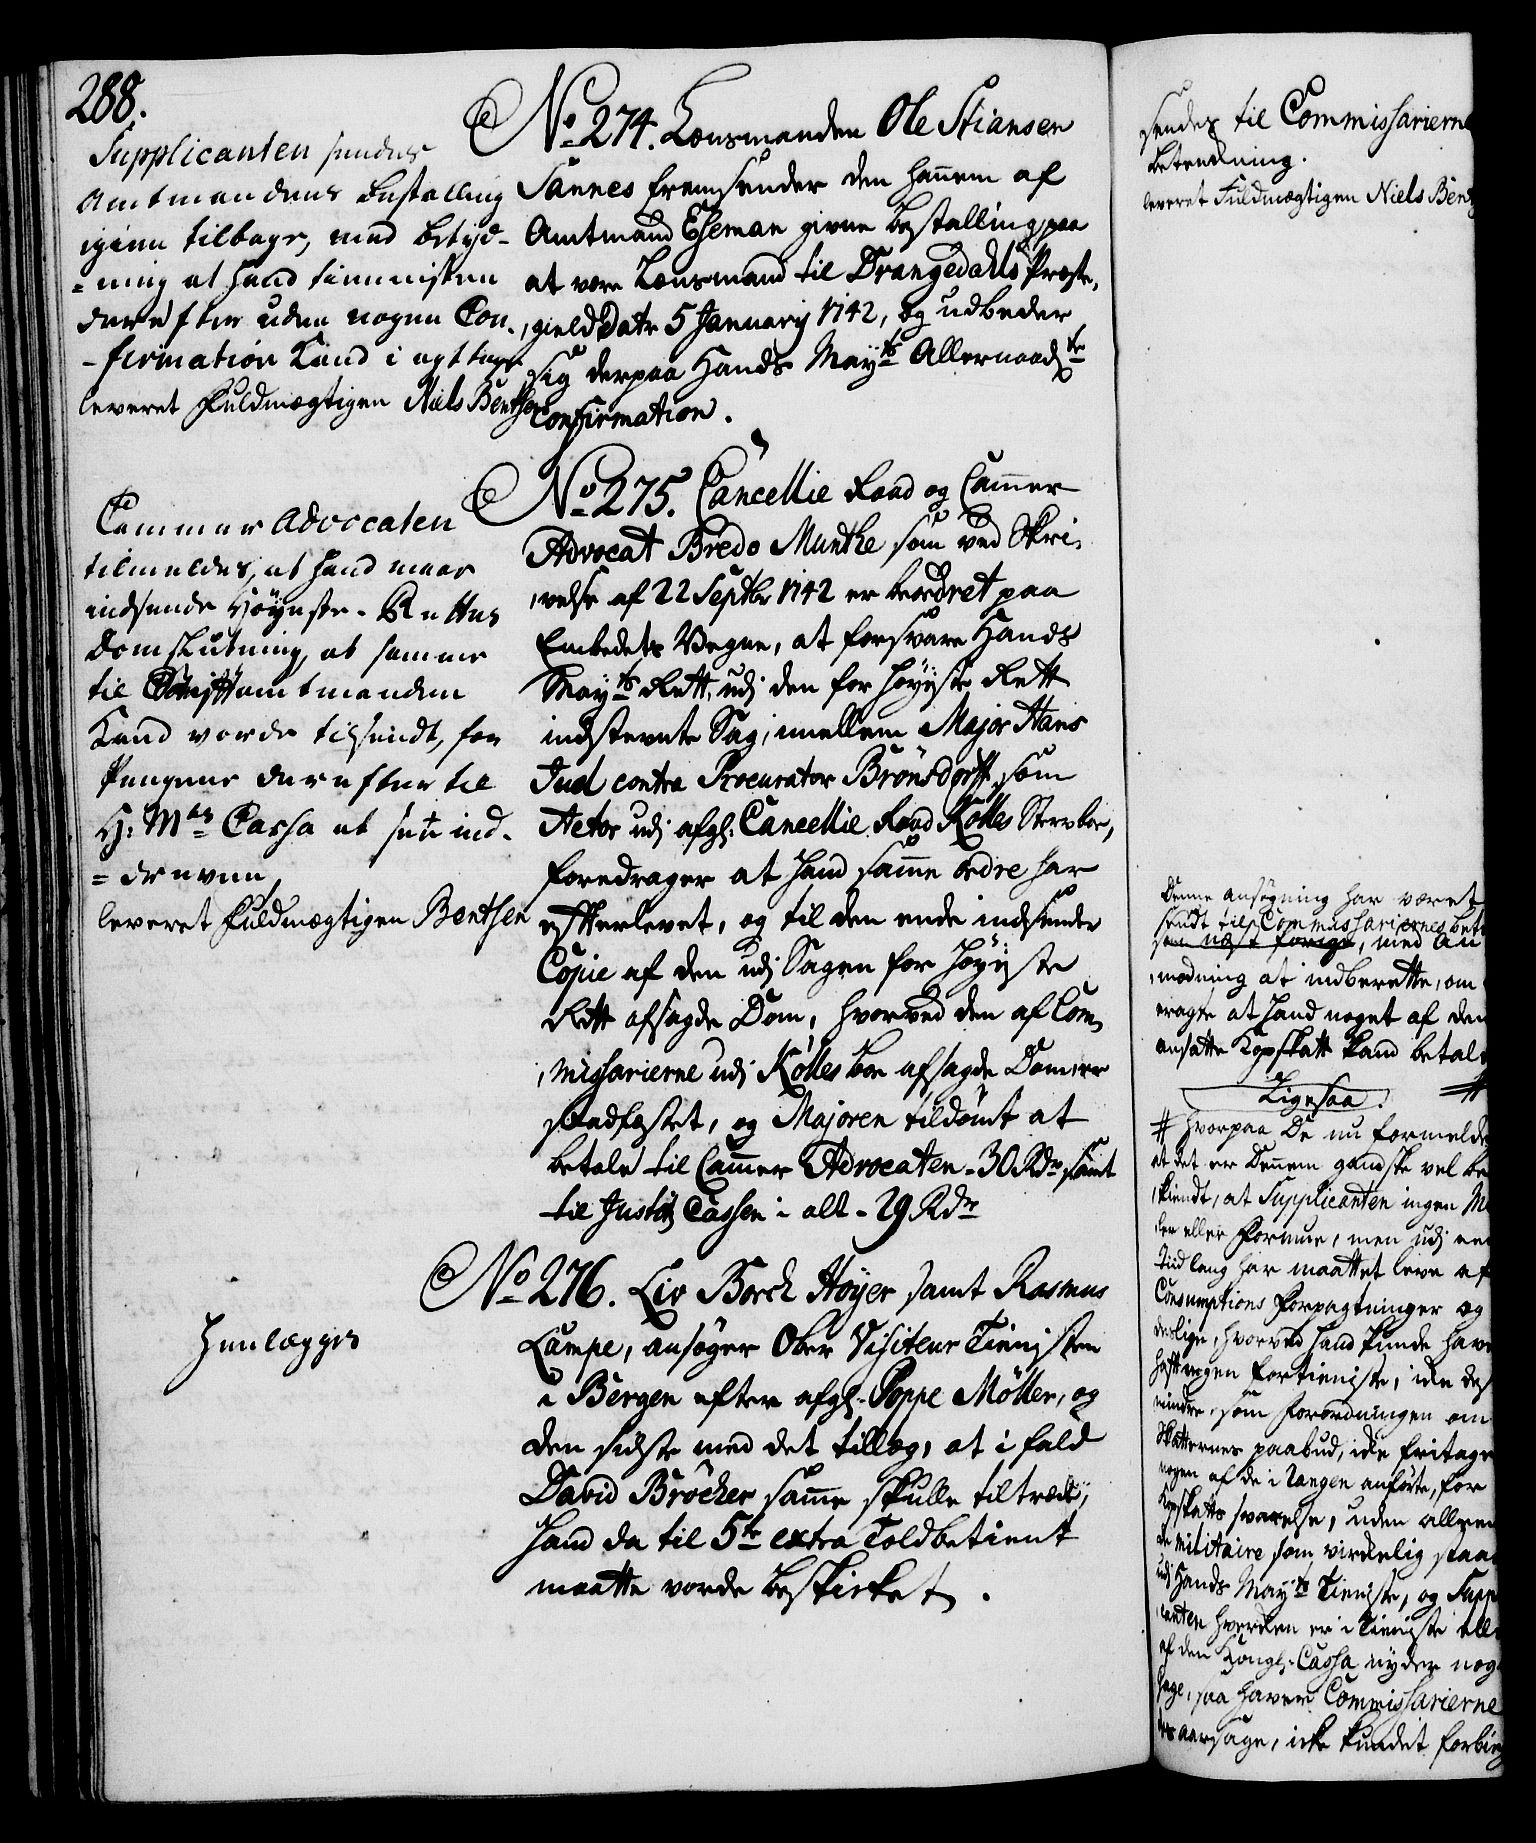 288.
Supplicanten sendes
Amtmandens Bestalling
igien tilbage, med betyd-
=ning at hand tiennisten
derefter uden nogen Con-
-firmation Kand i agt tage
leveret Fuldmægtigen Niels Bentsen
No 274. Lensmanden Ole Stiansen
Sannes fremsender den hannem af
Amtmand Eseman givne Bestalling paa
at være Lensmand til Drangedahls Præste,
,gield Datr 5 January 1742, og udbeder
sig derpaa Hands Mayts Allernaadste
Confirmation.
Cammer Advocaten
tilmeldes, at hand maae
indsende Höyeste-Rettes
Domslutning, at samme
til amtmanden
Kand vorde tilsendt, for
Pengene derefter til
H: Mts Cassa at see ind-
=dreven,
leveret Fuldmægtigen Bentsen
No 275. Cancellie Raad og Cammer
Advocat Bredo Munthe som ved Skri,
,velse af 22 Septbr 1742 er beordret paa
Embedets Vegne, at forsvare Hands
Mayts Rett, udj den for höyste Rett
indstevnte Sag, imellem Major Hans
Jud contra Procurator Brönsdorff, som
Actor udj afgl: Cancellie Raad Kölles Stervboe,
foredrager at hand samme ordre har
efterlevet, og til den ende indsender
Copie af den udj Sagen for höyste
Rett afsagde Dom, hvorved den af Com,
,missarierne udj Kölles boe afsagde Dom er
stadfæstet, og Majoren tildömt at
betale til Cammer Advocaten - 30 Rdr samt
til Justitz Cassen i alt - 29 Rdr
Henlægges
No 276. Liv Borch Höyer samt Rasmus
Lampe, ansöger Ober Visiteur Tienisten
i Bergen efter afgl: Poppe Möller, og
den sidste med det tillæg, at i fald
David Bröcker samme skulle tiltræde,
Hand da til 5te extra Toldbetient
maatte vorde beskicket.
sendes til Commissarierne
betenkning.
leveret Fuldmægtigen Niels Bent
Denne ansögning har været
sendt til Commissariernes bet
som næst forige, med an
,modning at indberette, om
eragte at hand noget af den
ansatte Kopskatt kand betal
Ligesaa. #
# hvorpaa De nu formelde
at det er Dennem gandske vel be
,kiendt, at Supplicanten ingen Mi
ler eller formue, men udj en
Tiid lang har maattet leve af
Consumptions forpagtninger og
deslige, hvorved hand kunde have
haft nogen fortieniste, icke des
mindre, som forordningen om
Skatternes paabud, icke fritage
nogen af de i Rangen anförte, for
Kopskatts svarelse, uden alleen
de Militaire som virckelig staa
udj Hands Mayts Tieniste, og Supp
,canten hverken er i Tieniste ell
af den Kongl: Cassa nyder nog
gage, saa haver Commissarierne
aarsage, icke kundet forbi